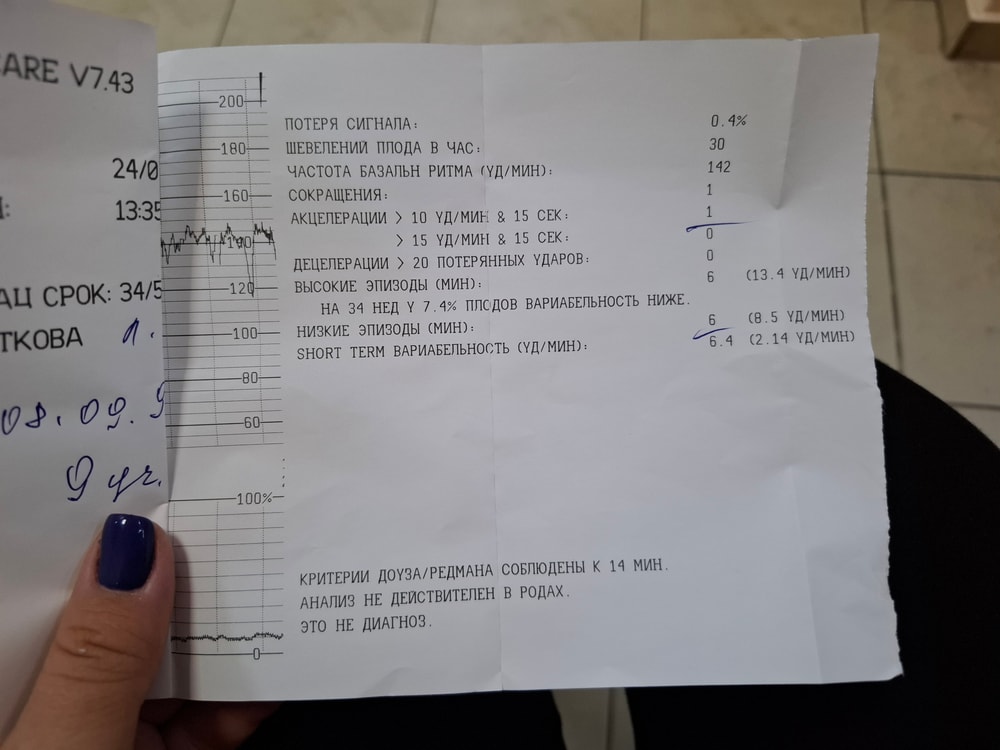 CARE V7.43
24/0
13:35
АЦ СРОК: 34/5
ТКОВА Л.
08.09.9
9 уч.
200
180
160
140
120
100
80
60
100%
0
ПОТЕРЯ СИГНАЛА: 0.4%
ШЕВЕЛЕНИЙ ПЛОДА В ЧАС: 30
ЧАСТОТА БАЗАЛЬН РИТМА (УД/МИН): 142
СОКРАЩЕНИЯ: 1
АКЦЕЛЕРАЦИИ > 10 УД/МИН & 15 СЕК: 1
> 15 УД/МИН & 15 СЕК: 0
ДЕЦЕЛЕРАЦИИ > 20 ПОТЕРЯННЫХ УДАРОВ: 0
ВЫСОКИЕ ЭПИЗОДЫ (МИН): 6 (13.4 УД/МИН)
НА 34 НЕД У 7.4% ПЛОДОВ ВАРИАБЕЛЬНОСТЬ НИЖЕ.
НИЗКИЕ ЭПИЗОДЫ (МИН): 6 (8.5 УД/МИН)
SHORT TERM ВАРИАБЕЛЬНОСТЬ (УД/МИН): 6.4 (2.14 УД/МИН)
КРИТЕРИИ ДОУЗА/РЕДМАНА СОБЛЮДЕНЫ К 14 МИН.
АНАЛИЗ НЕ ДЕЙСТВИТЕЛЕН В РОДАХ.
ЭТО НЕ ДИАГНОЗ.